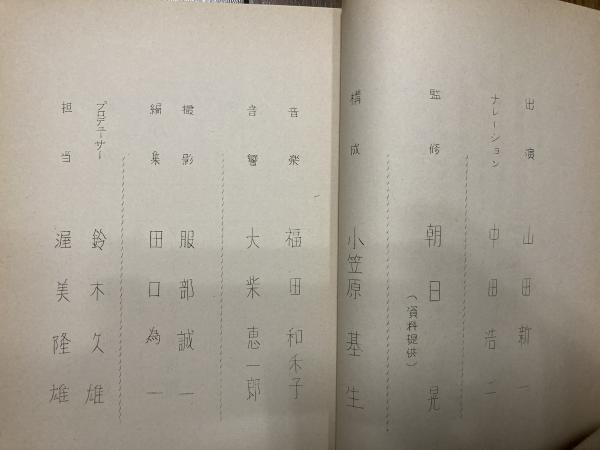 出演 山田新一
ナレーション 中田浩一
監修 朝日晃
(資料提供)
構成 小笠原基生
音楽 福田和禾子
音響 大柴恵一郎
撮影 服部誠一
編集 田口為一
プロデューサー 鈴木久雄
担当 渥美隆雄